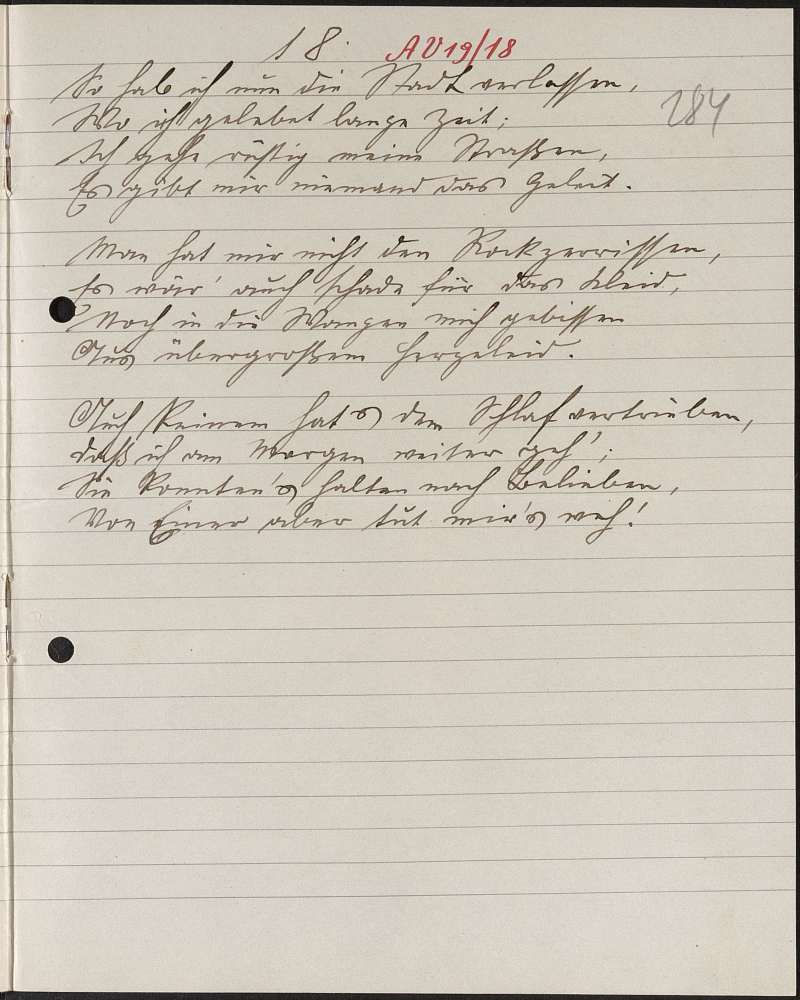 18.
AV19/18
284
So hab ich nun die Stadt verlassen,
Wo ich gelebet lange Zeit;
Ich gehe rüstig meine Straßen,
Es gibt mir niemand das Geleit.
Man hat mir nicht den Rock zerrissen,
Es wär' auch schade für das Kleid,
Noch in die Wangen mich gebissen
Aus übergroßem Herzeleid.
Auch keinem hat's den Schlaf vertrieben,
daß ich am Morgen weiter geh';
Sie konnten's halten nach Belieben,
Von Einer aber tut mir's weh!